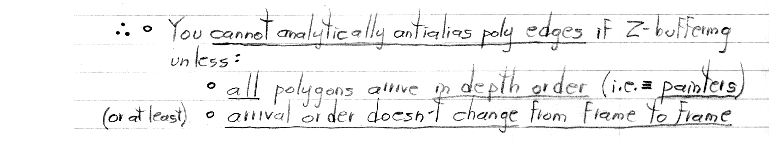 ∴ ∘ You cannot analytically antialias poly edges if Z-buffering
unless:
∘ all polygons arrive in depth order (i.e. ≡ painters)
(or at least) ∘ arrival order doesn't change from frame to frame